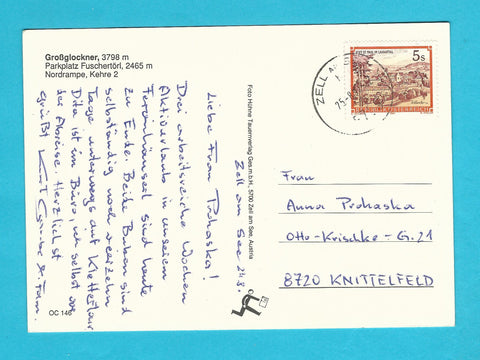 Großglockner, 3798 m
Parkplatz Fuschertörl, 2465 m
Nordrampe, Kehre 2
Zell am See 24.8.
Liebe Frau Prohaska!
Drei arbeitsreiche Wochen
Aktivurlaub in unserem
Ferienhäuserl sind heute
zu Ende. Beide Buben sind
selbständig noch vierzehn
Tage unterwegs auf Klettertour
Dita ist im Büro, ich selbst vor
der Abreise. Herzlichst
grüßt Kurt
u. Fam.
OC 146
Foto Höhne Tauernverlag Ges.m.b.H., 5700 Zell am See, Austria
ZELL AM
5s
REPUBLIK ÖSTERREICH
Frau
Anna Prohaska
Otto-Krischke-G. 21
8720 KNITTELFELD